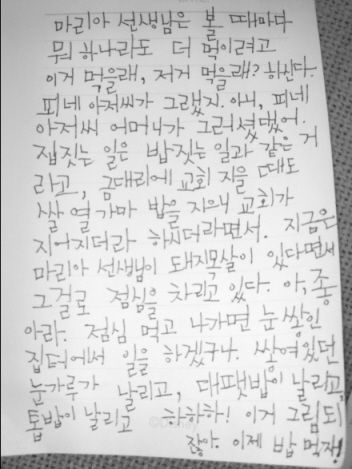 마리아 선생님은 볼 때마다
뭐 하나라도 더 먹이려고
이거 먹을래, 저거 먹을래? 하신다.
피네 아저씨가 그랬지. 아니, 피네
아저씨 어머니가 그러셨댔어.
집짓는 일은 밥짓는 일과 같은 거
라고, 금대리에 교회 지을 때도
쌀 열 가마 밥을 지으니 교회가
지어지더라 하시더라면서. 지금은
마리아 선생님이 돼지목살이 있다면서
그걸로 점심을 차리고 있다. 아, 좋
아라. 점심 먹고 나가면 눈 쌓인
집터에서 일을 하겠구나. 쌓여있던
눈가루가 날리고, 대팻밥이 날리고,
톱밥이 날리고 하하하! 이거 그림 되
잖아. 이제 밥 먹자!